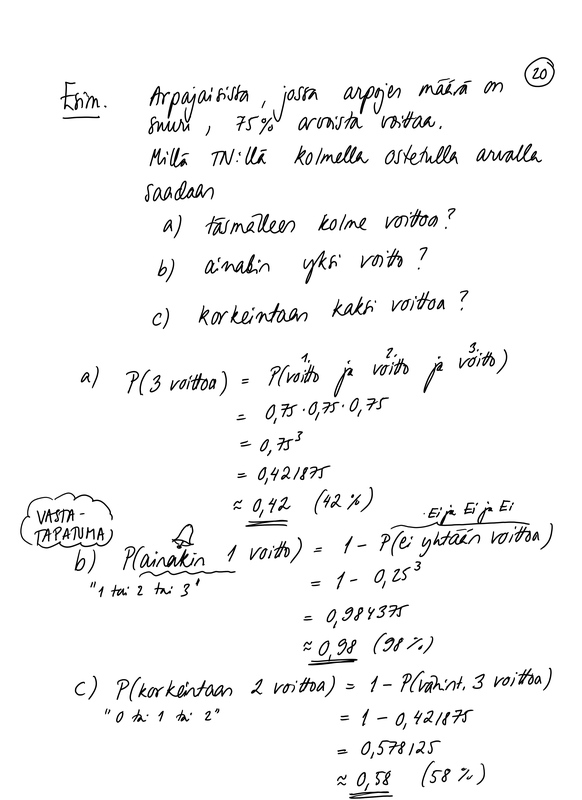 20
Esim. Arpajaisista, jossa arpojen määrä on
suuri, 75% arvoista voittaa.
Millä TN:llä kolmella ostetulla arvalla
saadaan
a) täsmälleen kolme voittoa?
b) ainakin yksi voitto?
c) korkeintaan kaksi voittoa?
1. 2. 3.
a) P(3 voittoa) = P(voitto ja voitto ja voitto)
= 0,75 · 0,75 · 0,75
= 0,75³
= 0,421875
≈ 0,42 (42 %)
VASTA-
TAPATUMA
Ei ja Ei ja Ei
b) P(ainakin 1 voitto) = 1 - P(ei yhtään voittoa)
"1 tai 2 tai 3" = 1 - 0,25³
= 0,984375
≈ 0,98 (98 %)
c) P(korkeintaan 2 voittoa) = 1 - P(vähint. 3 voittoa)
"0 tai 1 tai 2" = 1 - 0,421875
= 0,578125
≈ 0,58 (58 %)